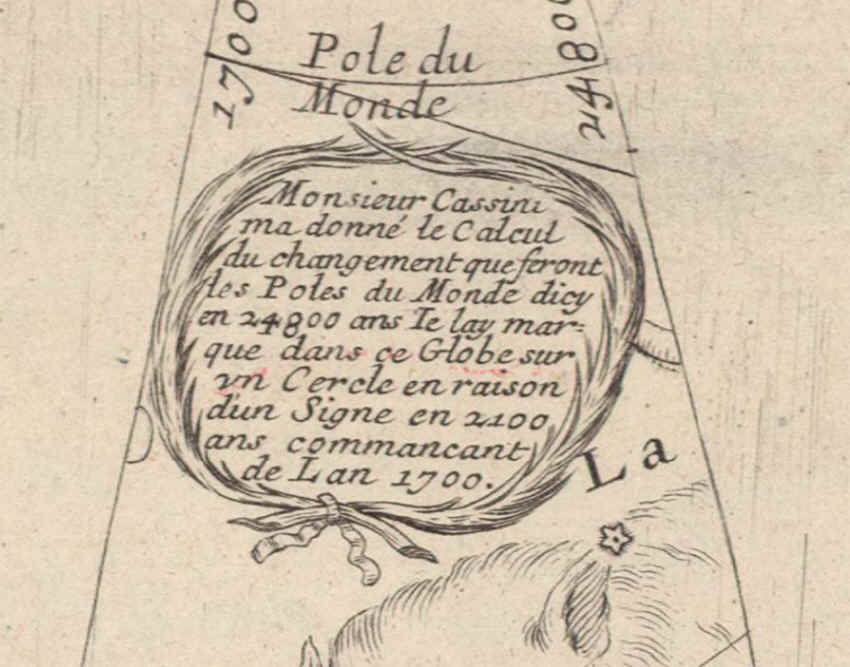 1700
Pole du
Monde
24800
Monsieur Cassini
ma donné le Calcul
du changement que feront
les Poles du Monde dicy
en 24800 ans Ie lay mar=
que dans ce Globe sur
vn Cercle en raison
d'un Signe en 2100
ans commancant
de Lan 1700.
La